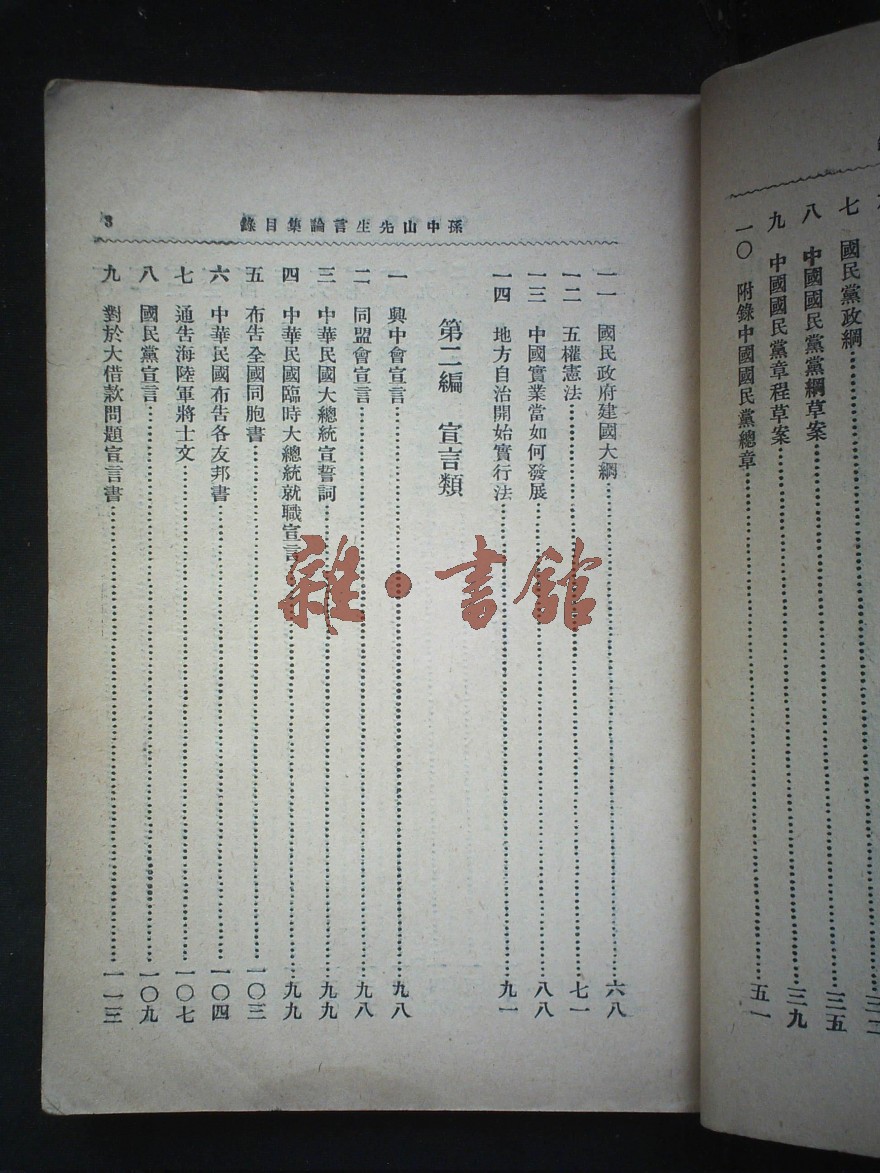 七 國民黨政綱……
八 中國國民黨黨綱草案……三五
九 中國國民黨章程草案……三九
一〇 附錄中國國民黨總章……五一
孫中山先生言論集目錄
3
一一 國民政府建國大綱……六八
一二 五權憲法……七一
一三 中國實業當如何發展……八八
一四 地方自治開始實行法……九一
第二編 宣言類
一 興中會宣言……九八
二 同盟會宣言……九八
三 中華民國大總統宣誓詞……九九
四 中華民國臨時大總統就職宣言……九九
五 布告全國同胞書……一〇三
六 中華民國布告各友邦書……一〇四
七 通告海陸軍將士文……一〇七
八 國民黨宣言……一〇九
九 對於大借款問題宣言書……一一三
雜·書館